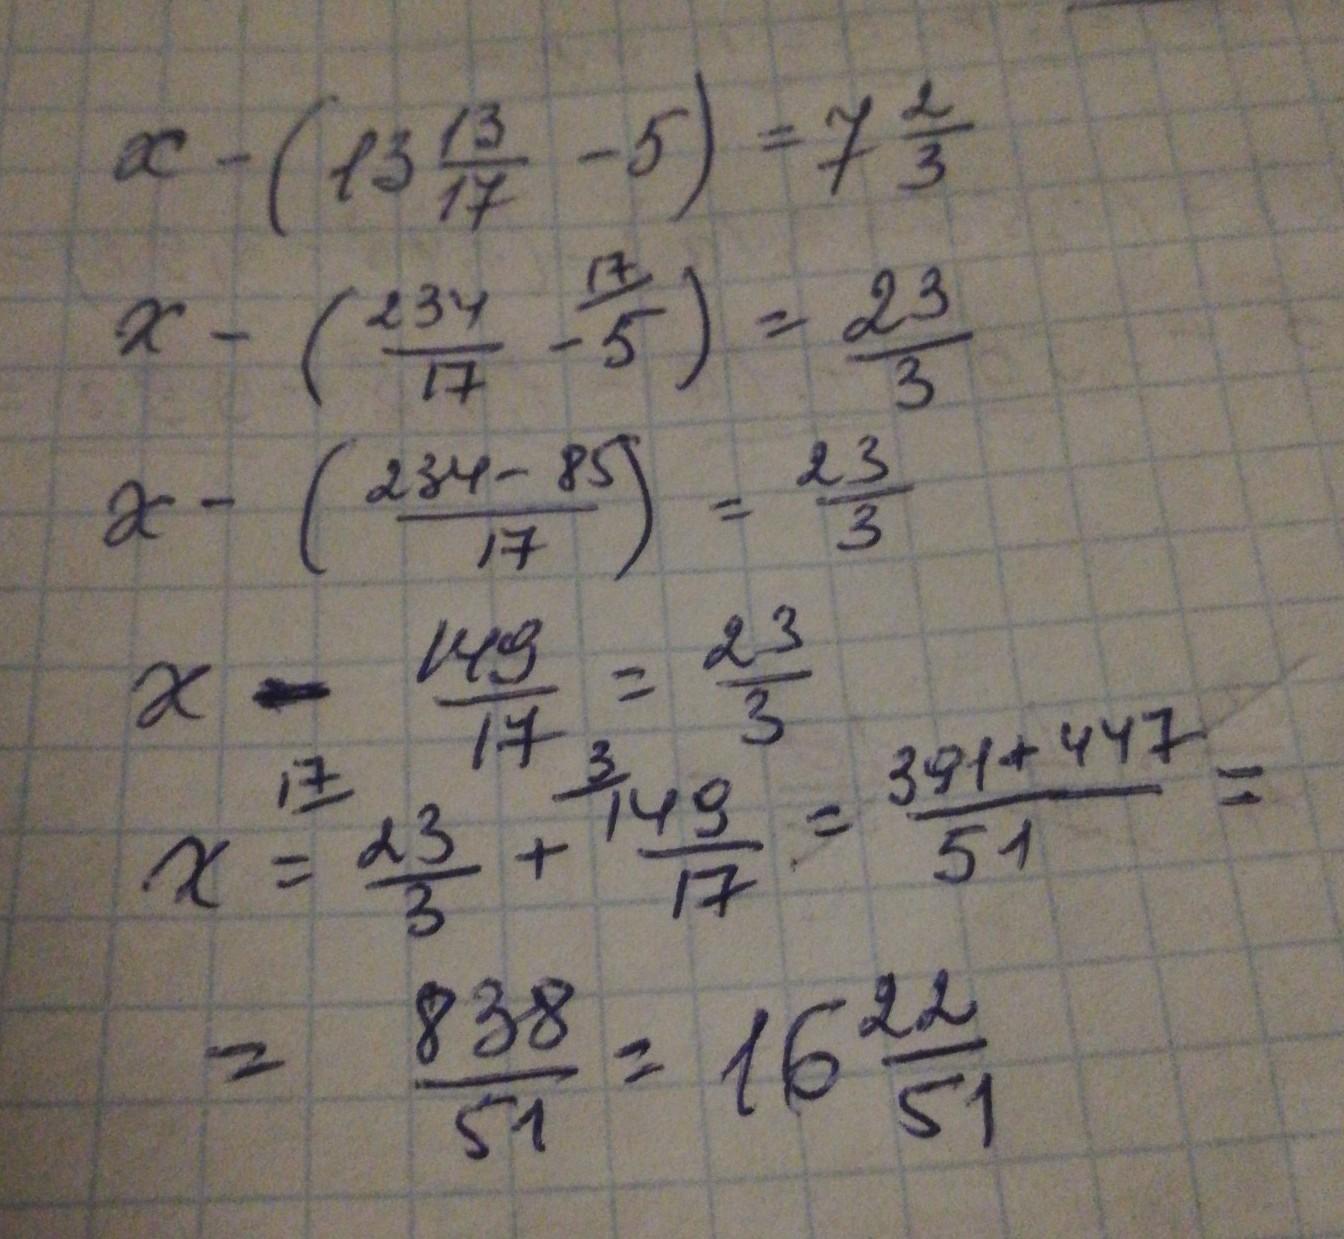 x - (13 13/17 - 5) = 7 2/3
x - (234/17 - 5 17/) = 23/3
x - ((234 - 85)/17) = 23/3
x - 149/17 = 23/3
x = 17/ 23/3 + 3/ 149/17 = (391 + 447)/51 =
= 838/51 = 16 22/51